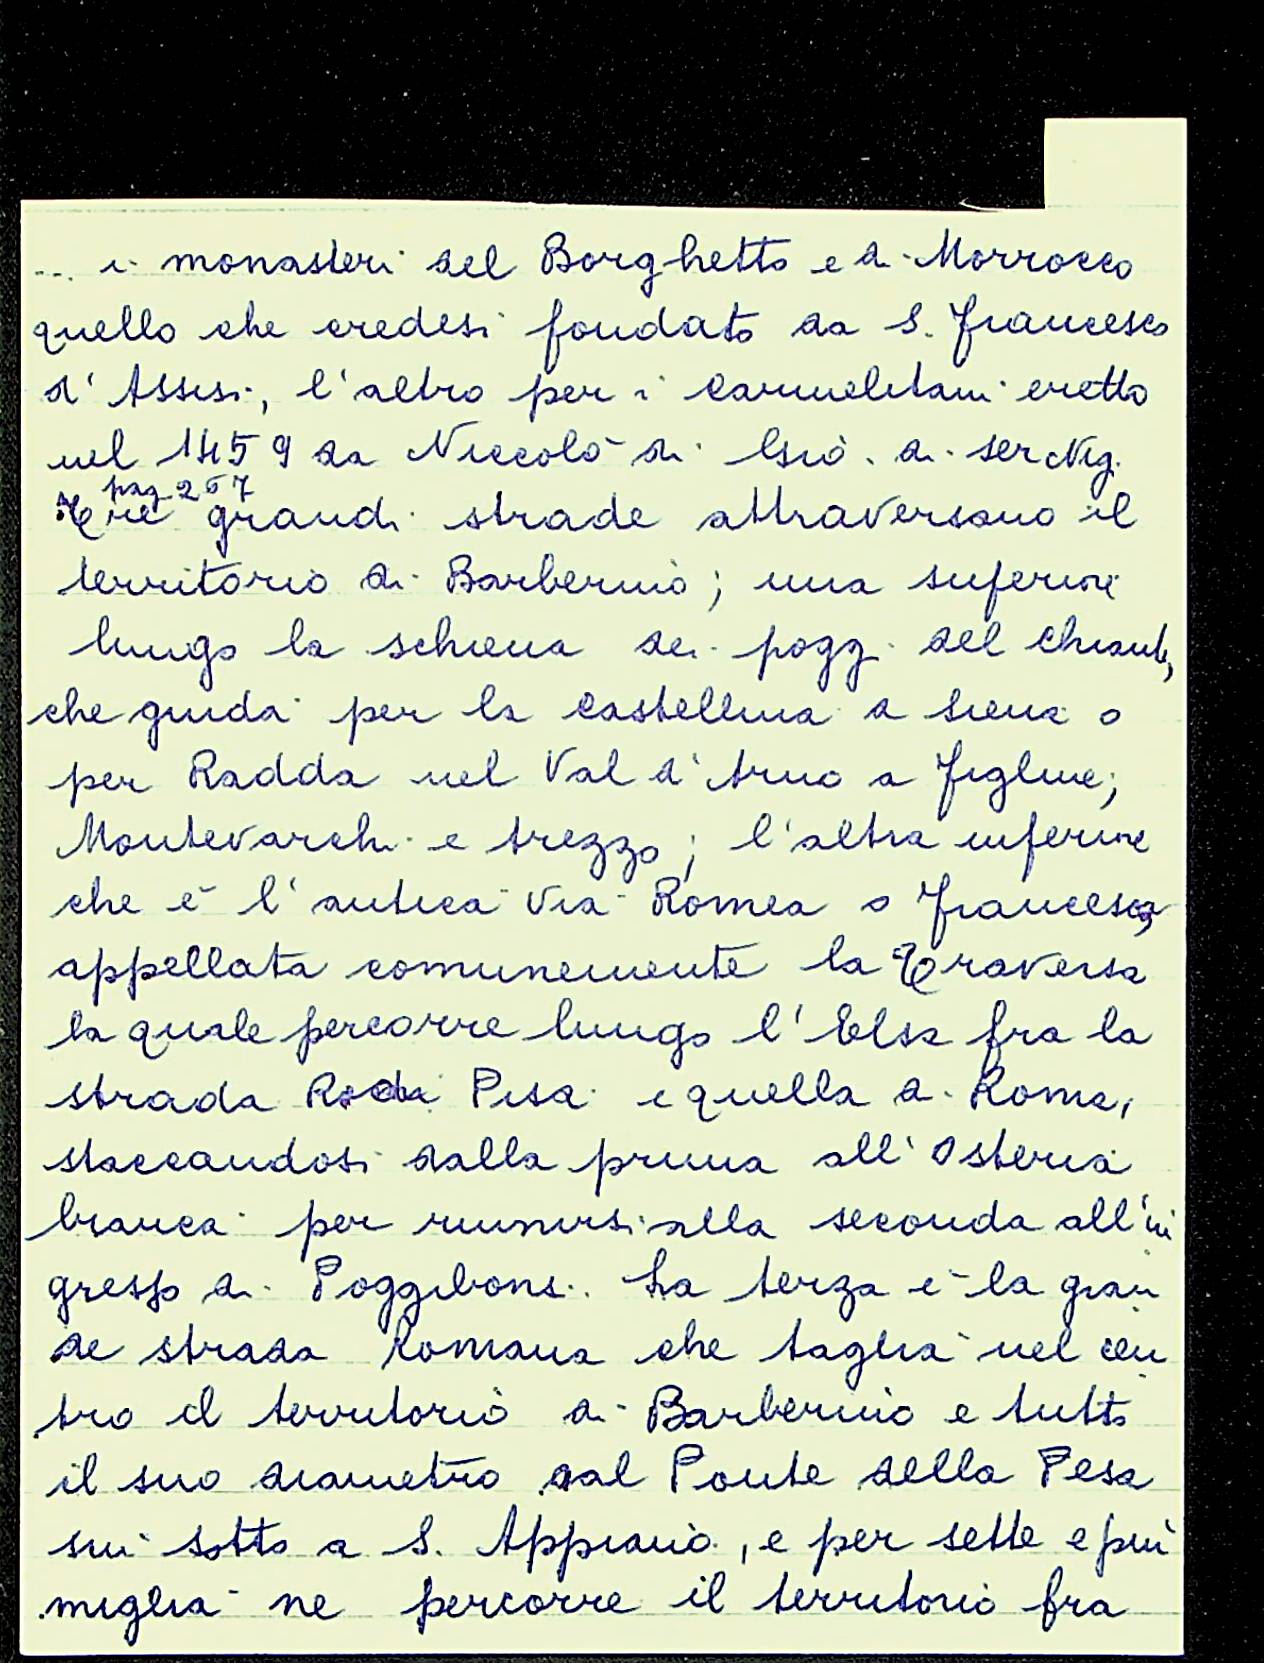 ... i monasteri del Borghetto e di Morrocco
quello che credesi fondato da S. Francesco
d'Assisi, l'altro per i Carmelitani eretto
nel 1459 da Niccolò di Giò. di ser Nig.
pag 257
Tre grandi strade attraversano il
territorio di Barberino; una superiore
lungo la schiena dei poggi del Chianti,
che guida per la Castellina a Siena o
per Radda nel Val d'Arno a Figline;
Montevarchi e Arezzo; l'altra inferiore
che è l'antica via Romea o Francesca,
appellata comunemente la Traversa
la quale percorre lungo l'Elsa fra la
strada R. di Pisa e quella di Roma,
staccandosi dalla prima all'Osteria
bianca per riunirsi alla seconda all'in
gresso di Poggibonsi. La terza è la gran
de strada Romana che taglia nel cen
tro il territorio di Barberino e tutto
il suo diametro dal Ponte della Pesa
sin sotto a S. Appiano, e per sette e più
miglia ne percorre il territorio fra